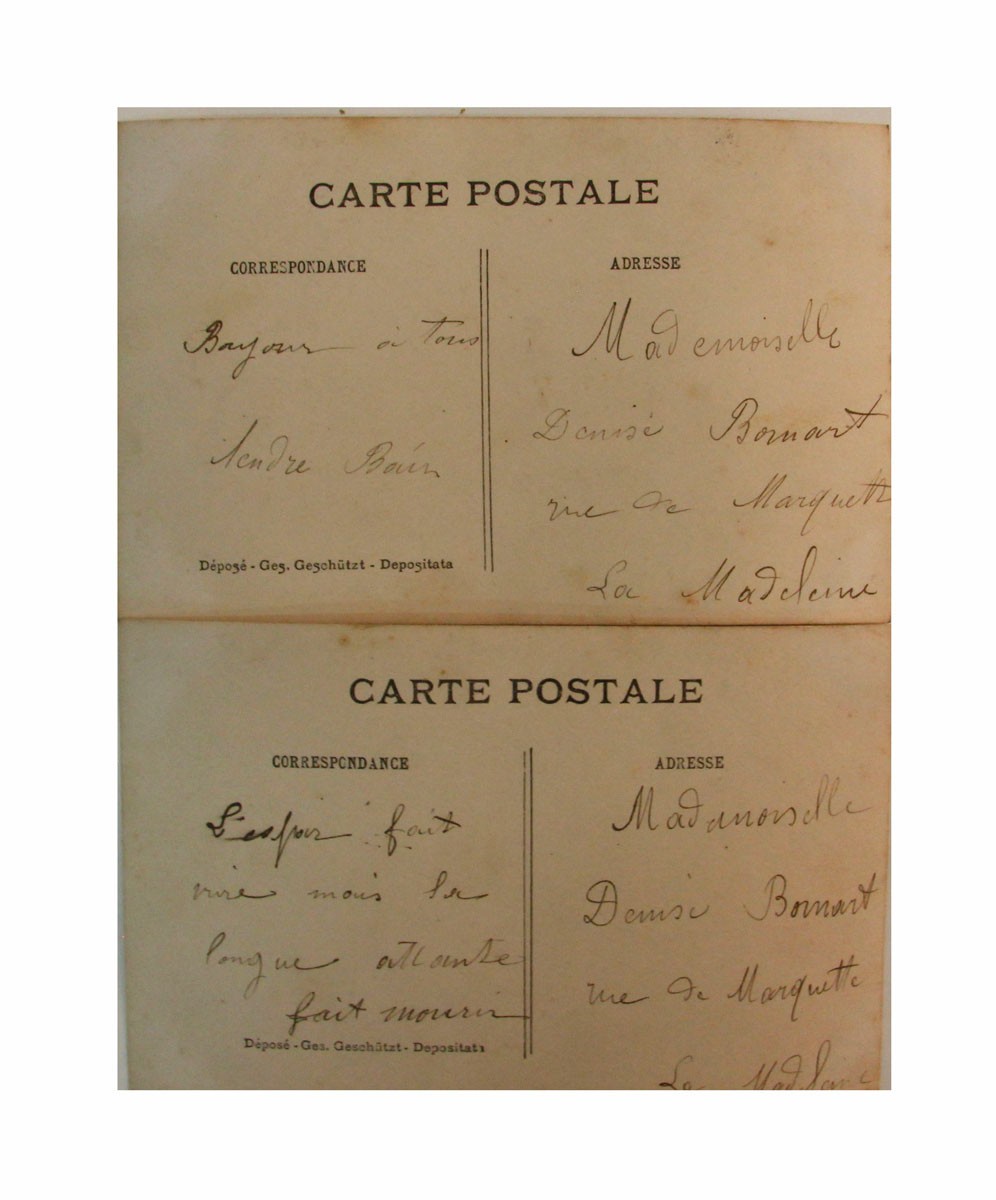 CARTE POSTALE
CORRESPONDANCE
ADRESSE
à tous
Mademoiselle
Denise Bomart
rue de Marquette
La Madeleine
Déposé - Ges. Geschützt - Depositata
CARTE POSTALE
CORRESPONDANCE
ADRESSE
L'espoir fait
vivre mais la
longue attante
fait mourir
Mademoiselle
Denise Bomart
rue de Marquette
La Madeleine
Déposé - Ges. Geschützt - Depositata